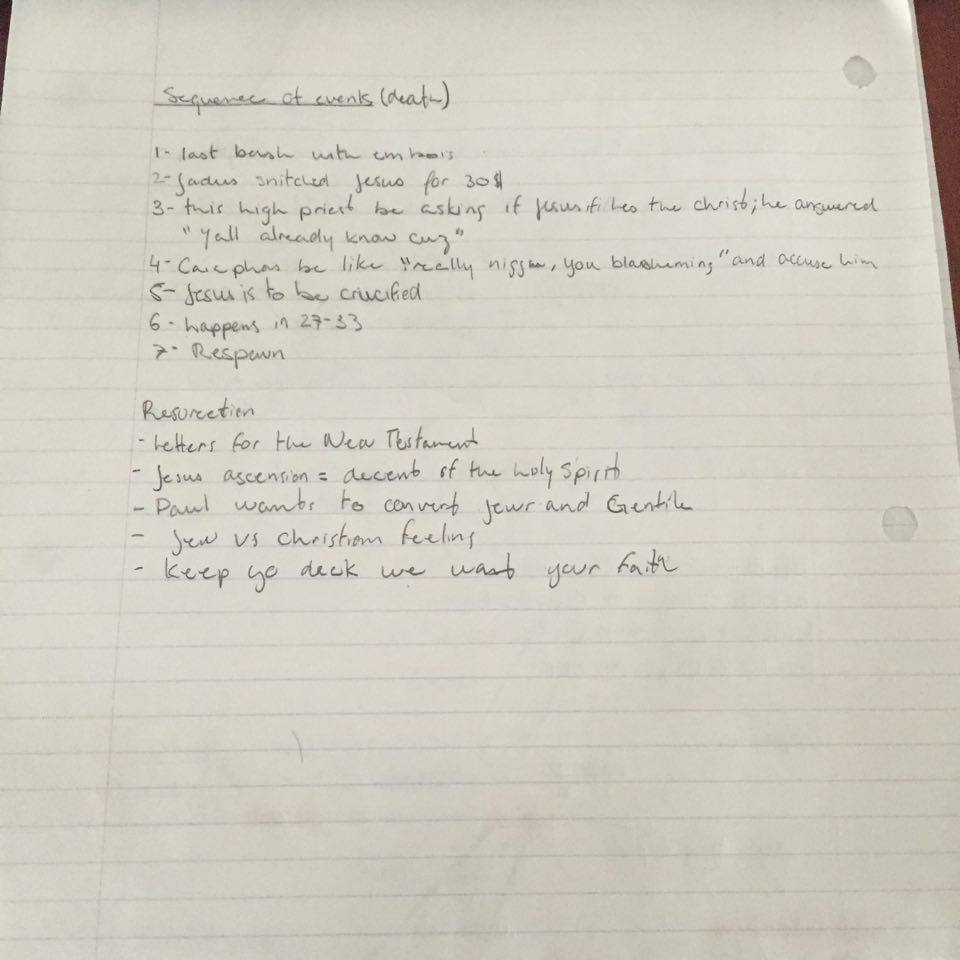 Sequence of events (death)
1- last bash with em bois
2- Judus snitched Jesus for 30$
3- this high priest be asking if Jesus if hes the christ; he answered
"Yall already know cuz"
4- Caiephas be like "really nigga, you blasheming" and accuse him
5- Jesus is to be crucified
6- happens in 27-33
7- Respawn
Resurection
- Letters for the New Testament
- Jesus ascension = decent of the holy Spirit
- Paul wants to convert Jews and Gentile
- Jew vs Christian feeling
- Keep yo deck we want your faith